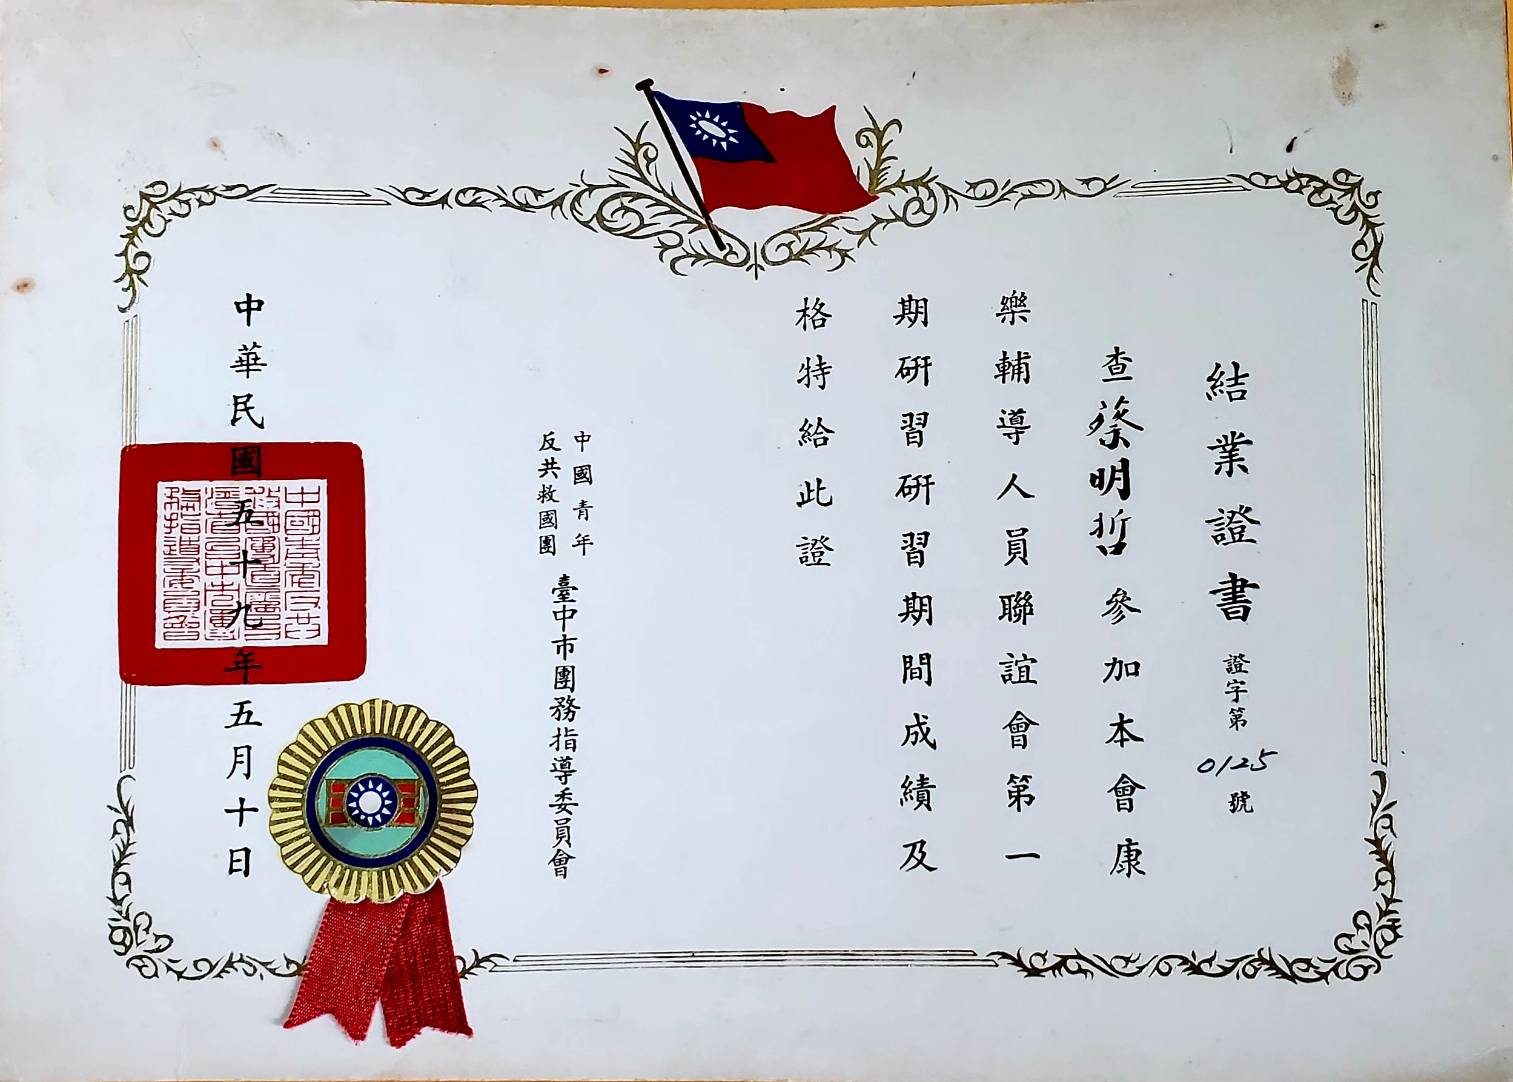 結業證書 證字第0125號
查蔡明哲參加本會康
樂輔導人員聯誼會第一
期研習研習期間成績及
格特給此證
中國青年
反共救國團
臺中市團務指導委員會
中華民國五十九年五月十日